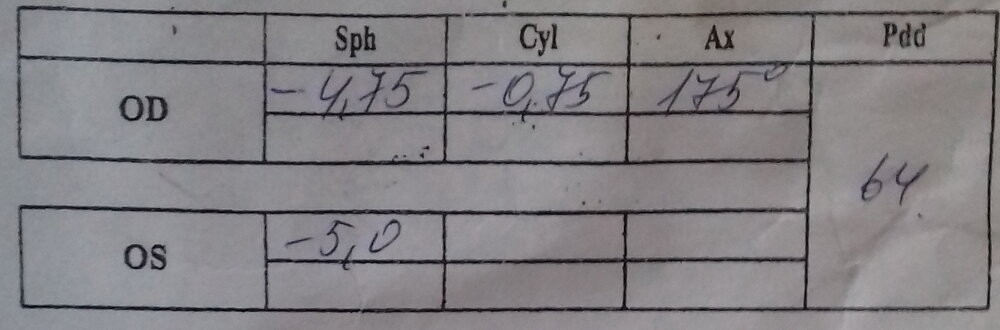 Sph Cyl Ax Pdd
OD -4,75 -0,75 175°
64
OS -5,0